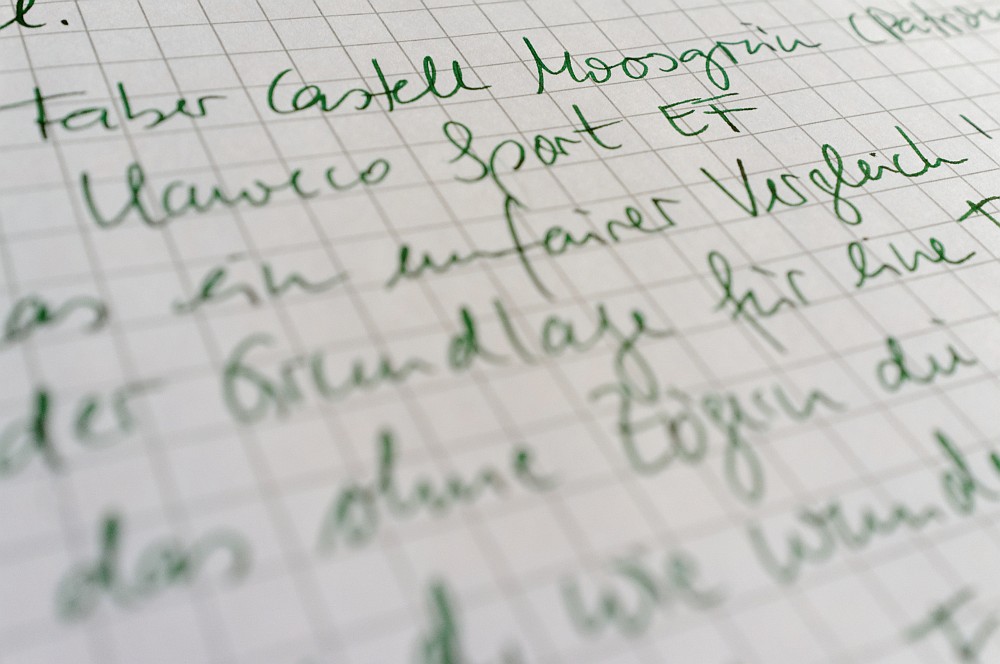 e.
Faber Castell Moosgrün (Patron
Kaweco Sport EF
as ein unfairer Vergleich!
der Grundlage für eine
das ohne Zögern die
d, wie wund